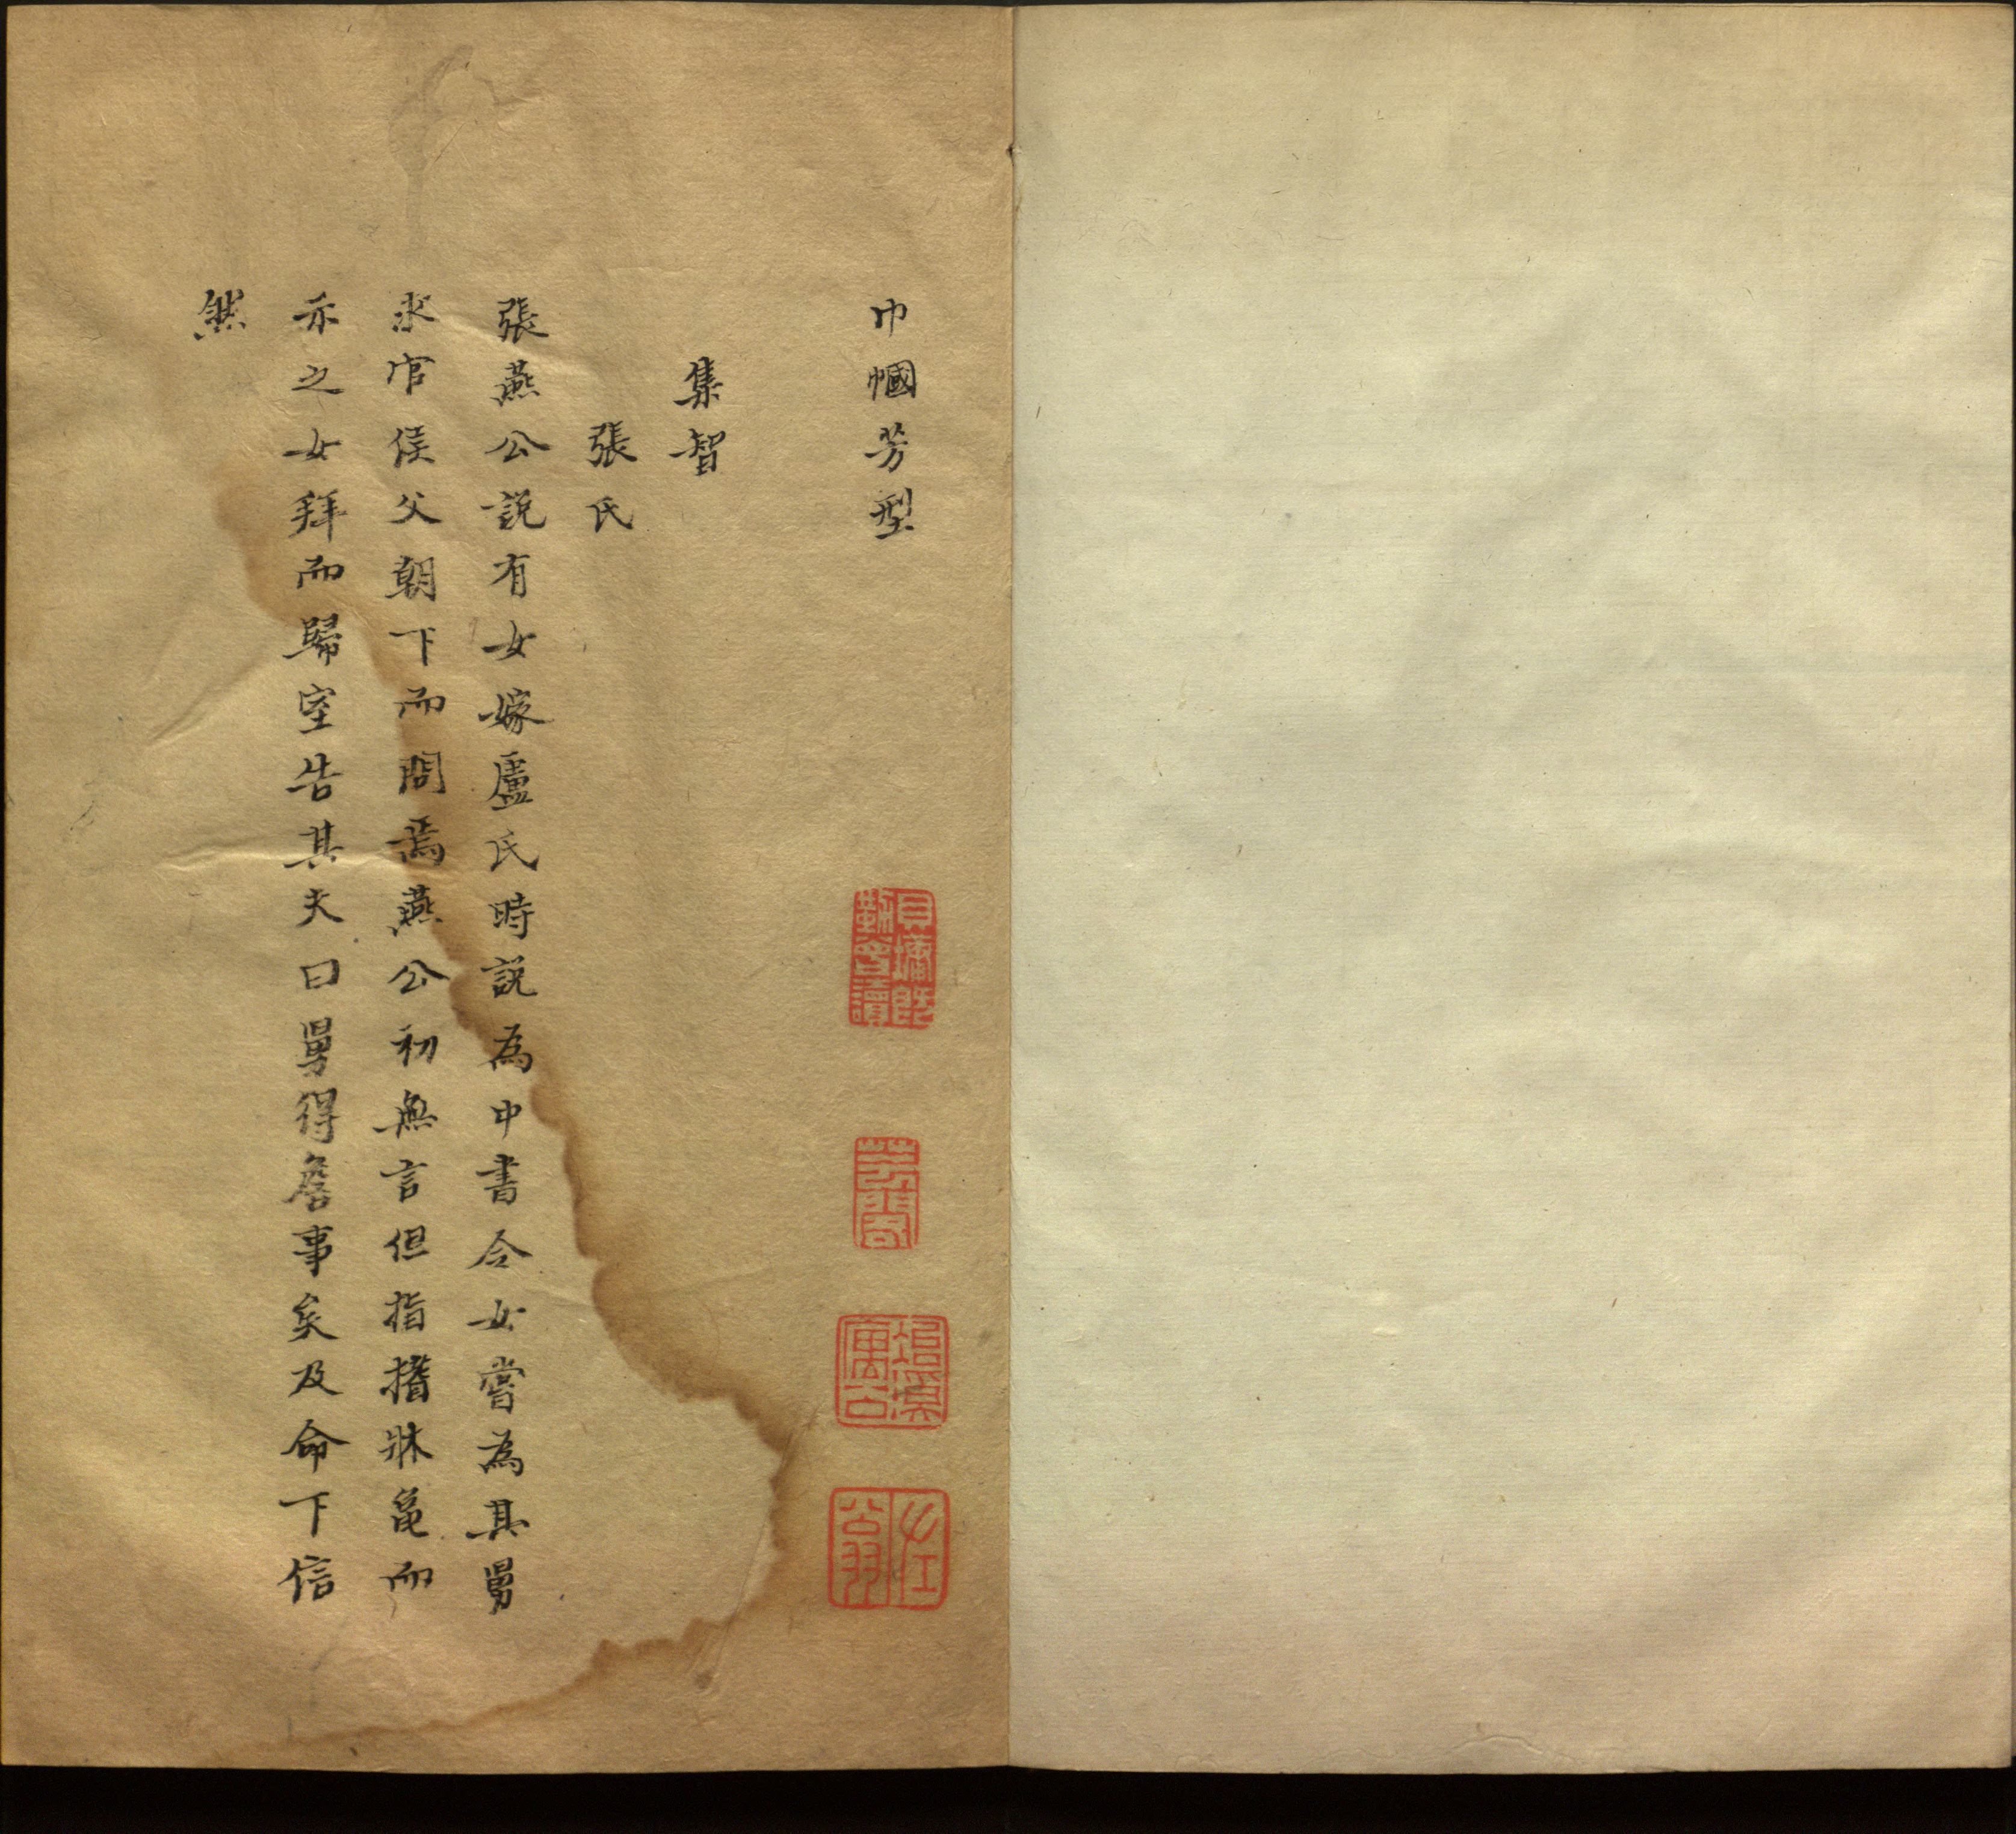 巾幗芳型
貝墉既勤曾讀
集智
張氏
張燕公説有女嫁盧氏時説為中書令女嘗為其舅
求官侯父朝下而問焉燕公初無言但指搘牀龜而
示之女拜而歸室告其夫曰舅得詹事矣及命下信
然